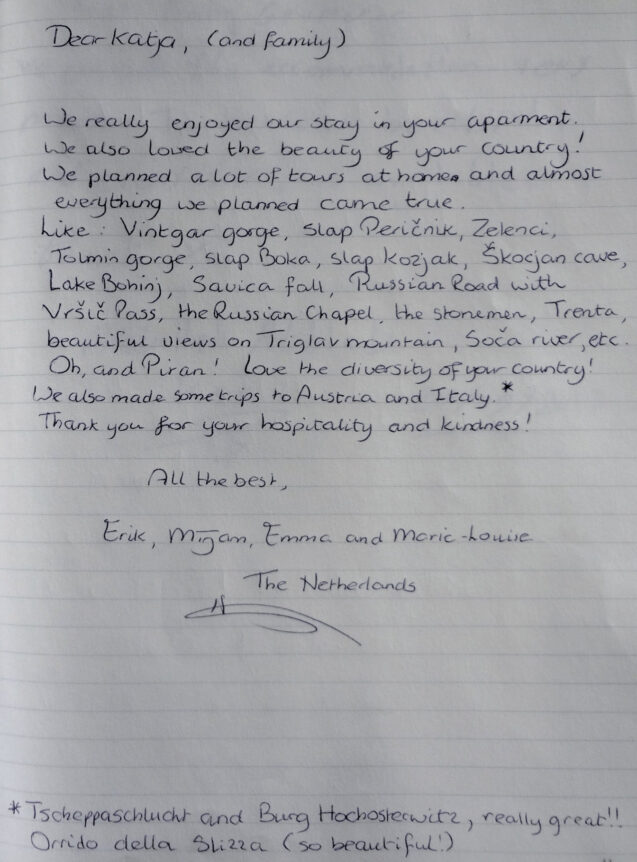 Dear Katja, (and family)
We really enjoyed our stay in your aparment.
We also loved the beauty of your country!
We planned a lot of tours at home and almost
everything we planned came true.
Like: Vintgar gorge, Slap Peričnik, Zelenci,
Tolmin gorge, slap Boka, slap Kozjak, Škocjan cave,
Lake Bohinj, Savica fall, Russian Road with
Vršič Pass, the Russian Chapel, the stonemen, Trenta,
beautiful views on Triglav mountain, Soča river, etc.
Oh, and Piran! Love the diversity of your country!
We also made some trips to Austria and Italy.*
Thank you for your hospitality and kindness!
All the best,
Erik, Mirjam, Emma and Marie-Louise
The Netherlands
*Tscheppaschlucht and Burg Hochosterwitz, really great!!
Orrido della Slizza (so beautiful!)